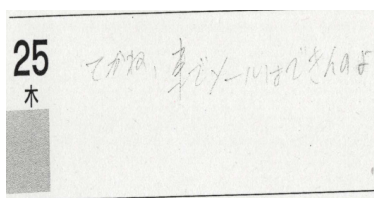 25
木
てがね、車でメールはできんのよ